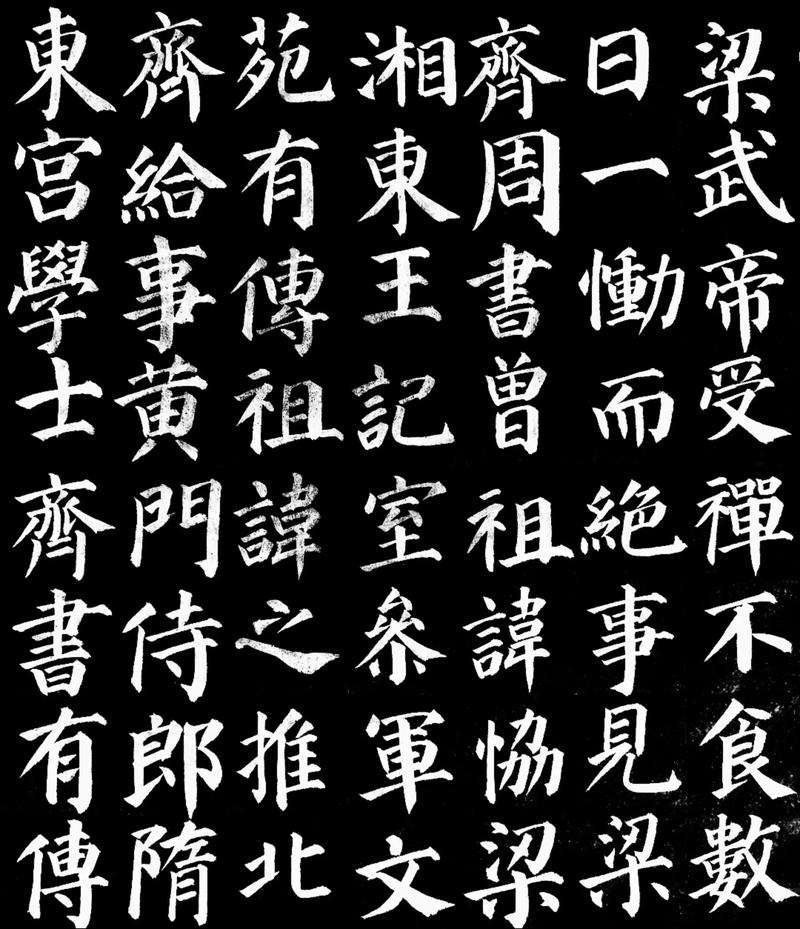 梁武帝受禪不食數
日一慟而絶事見梁
齊周書曾祖諱恊梁
湘東王記室叅軍文
苑有傳祖諱之推北
齊給事黄門侍郎隋
東宮學士齊書有傳